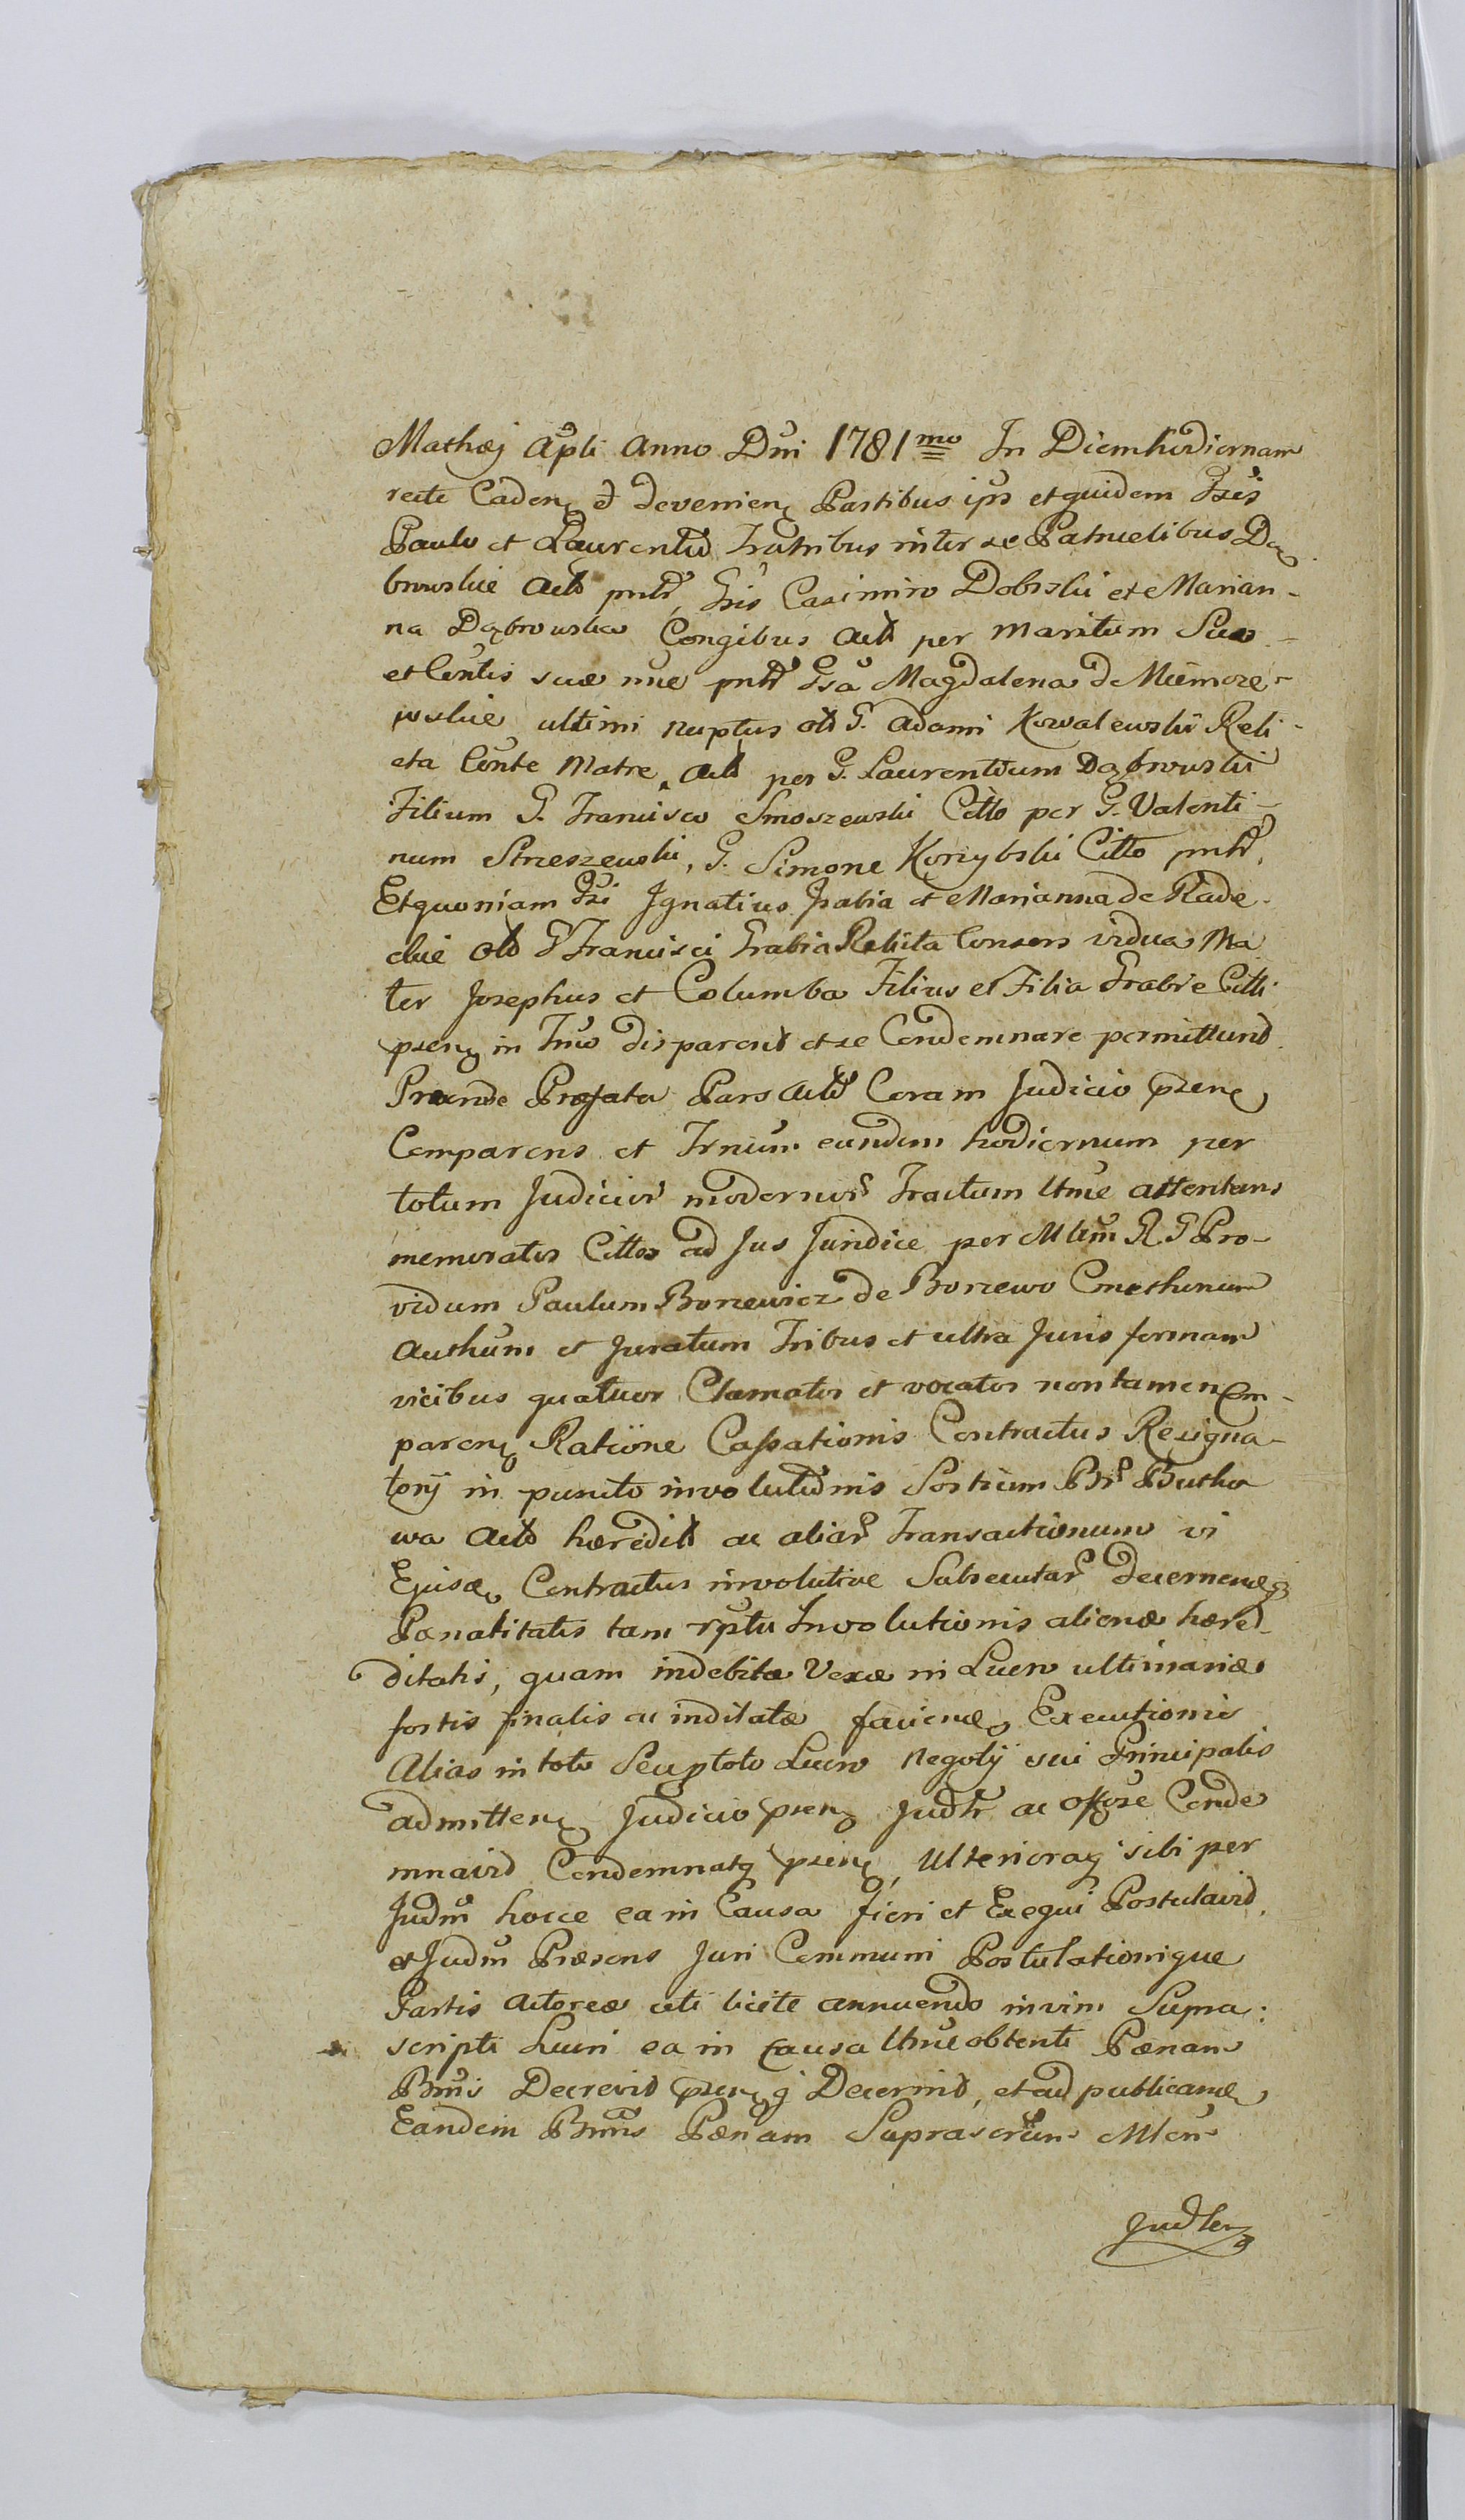 Mathæj Apli Anno Dni 1781mo In Diem hodiernam
recte Caden et devenien Partibus ips et quidem Gsis
Paulo et Laurentio Fratribus inter se Patruelibus Dą
browskie Actt pntt, Gsis Casimiro Dobrski et Marian-
na Dąbrowska Congibus Actt per Maritum Suo
et Contis suæ nne pntt Gsa Magdalena de Mierzze-
wskie ultimi Nuptus olt G. Adami Kowalewski Reli-
cta Conte Matre, Actt per G. Laurentium Dąbrowski
Filium G. Francisco Smoszewski Citto per G. Valenti-
num Strzeszewski, G. Simone Korzybski Citto pntt,
Et quoniam Gsi Ignatius Grabia et Marianna de Rade-
ckie olt G Francisci Grabia Relicta Consors vidua Ma
ter Josephus et Columba Filius et Filia Grabie Citti
psen in Tnno disparent et se Condemnare permittunt.
Proinde Præfata Pars Actt Coram Judicio psen
Comparens et Trnum eundem hodiernum per
totum Judicior modernor Tractum ttme attentans
memoratos Cittos ad Jus Juridice per Mttm R G Pro-
vidum Paulum Borzewicz de Borzewo Cmethonum
Authum et Juratum Tribus et ultra Juris formam
vicibus quatuor Clamatos et vocatos non tamen Com-
paren Ratione Cassationis Contractus Resigna-
torij in puncto involutionis Sortium Br Butko
wa Actt hæreditt ac aliar Transactionum vi
Ejusd Contractus involutive Subsecutar decernen
Pœnalitatis tam rptu Involutionis alienæ hæred-
ditatis, quam indebitæ Vexæ in Lucro ultimariæ
fortis finalis ac indilatæ facienæ Executionis
Alias in toto Seu ptoto Lucro Negotij sui Principalis
admitten Judicio psen Judtr ac Offose Conde
mnavit Condemnatq psen, Ulterioraq sibi per
Judm hocce ea in Causa fieri et Exequi Postulavit,
et Judm Præsens Juri Communi Postulationique
Partis Actoreæ uti licite annuendo in vim Supra:
scripti Lucri ea in Causa ttme obtenti Pœnam
Bnnis Decrevit psen q Decernit, et ad publicanæ
Eandem Bnnis Pœnam Suprascrum Mlem
Judler